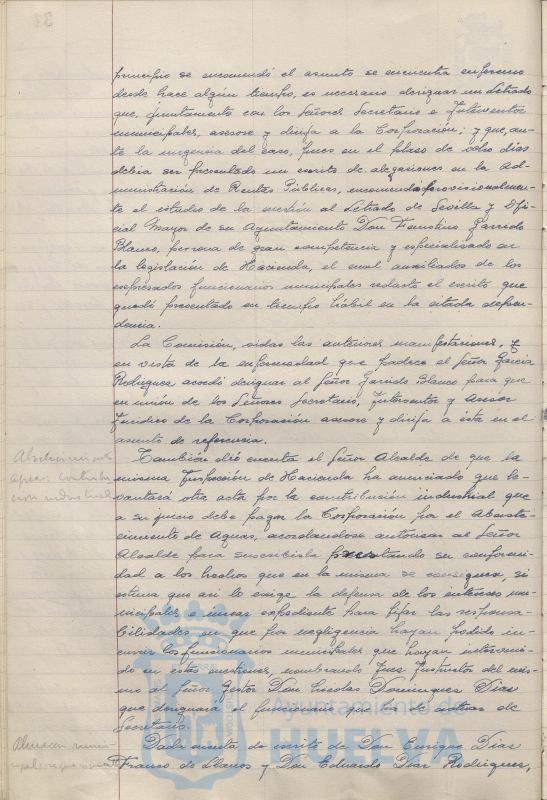 31
principio se encomendó el asunto se encuentra enfermo
desde hace algún tiempo, es necesario designar un Letrado
que, juntamente con los Señores Secretario e Interventor
municipales, asesore y dirija a la Corporación; y que, an-
te la urgencia del caso, pues en el plazo de ocho dias
debia ser presentado un escrito de alegaciones en la Ad-
ministración de Rentas Públicas, encomendó provisionalmen-
te el estudio de la cuestión al Letrado de Sevilla y Ofi-
cial Mayor de su Ayuntamiento Don Faustino Garrido
Blanco, persona de gran competencia y especializado en
la legislación de Hacienda, el cual auxiliado de los
expresados funcionarios municipales redactó el escrito que
quedó presentado en tiempo hábil en la citada depen-
dencia.
La Comisión, oidas las anteriores manifestaciones, y
en vista de la enfermedad que padece el Señor Garcia
Rodriguez acordó designar al Señor Garrido Blanco para que
en unión de los Señores Secretario, Interventor y Asesor
Juridico de la Corporación asesore y dirija a ésta en el
asunto de referencia.
Abastecimiento
aguas contribu
ción industrial
Tambien dió cuenta el Señor Alcalde de que la
misma Inspección de Hacienda ha anunciado que le-
vantará otra acta por la contribución industrial que
a su juicio debe pagar la Corporación por el Abaste-
cimiento de Aguas, acordandose autorizar al Señor
Alcalde para suscribirla prestando su conformi-
dad a los hechos que en la misma se consignen, si
estima que asi lo exige la defensa de los intereses mu-
nicipales e incoar expediente para fijar las responsa-
bilidades en que por negligencia hayan podido in-
currir los funcionarios municipales que hayan interveni-
do en estas cuestiones, nombrando Juez Instructor del mis-
mo al Señor Gestor Don Nicolas Dominguez Diaz
que designará el funcionario que ha de actuar de
Secretario.
Almacen muni-
cipal
Dada cuenta de escrito de Don Enrique Diaz
Franco de Llanos y Don Eduardo Diaz Rodriguez,
Ayuntamiento de
HUELVA